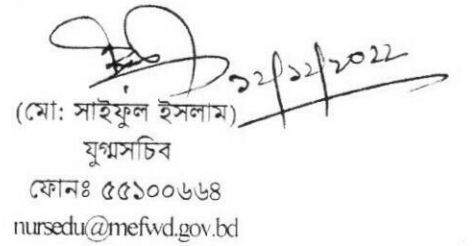 ১২/১২/২০২২
(মো: সাইফুল ইসলাম)
যুগ্মসচিব
ফোনঃ ৫৫১০০৬৬৪
nursedu@mefwd.gov.bd